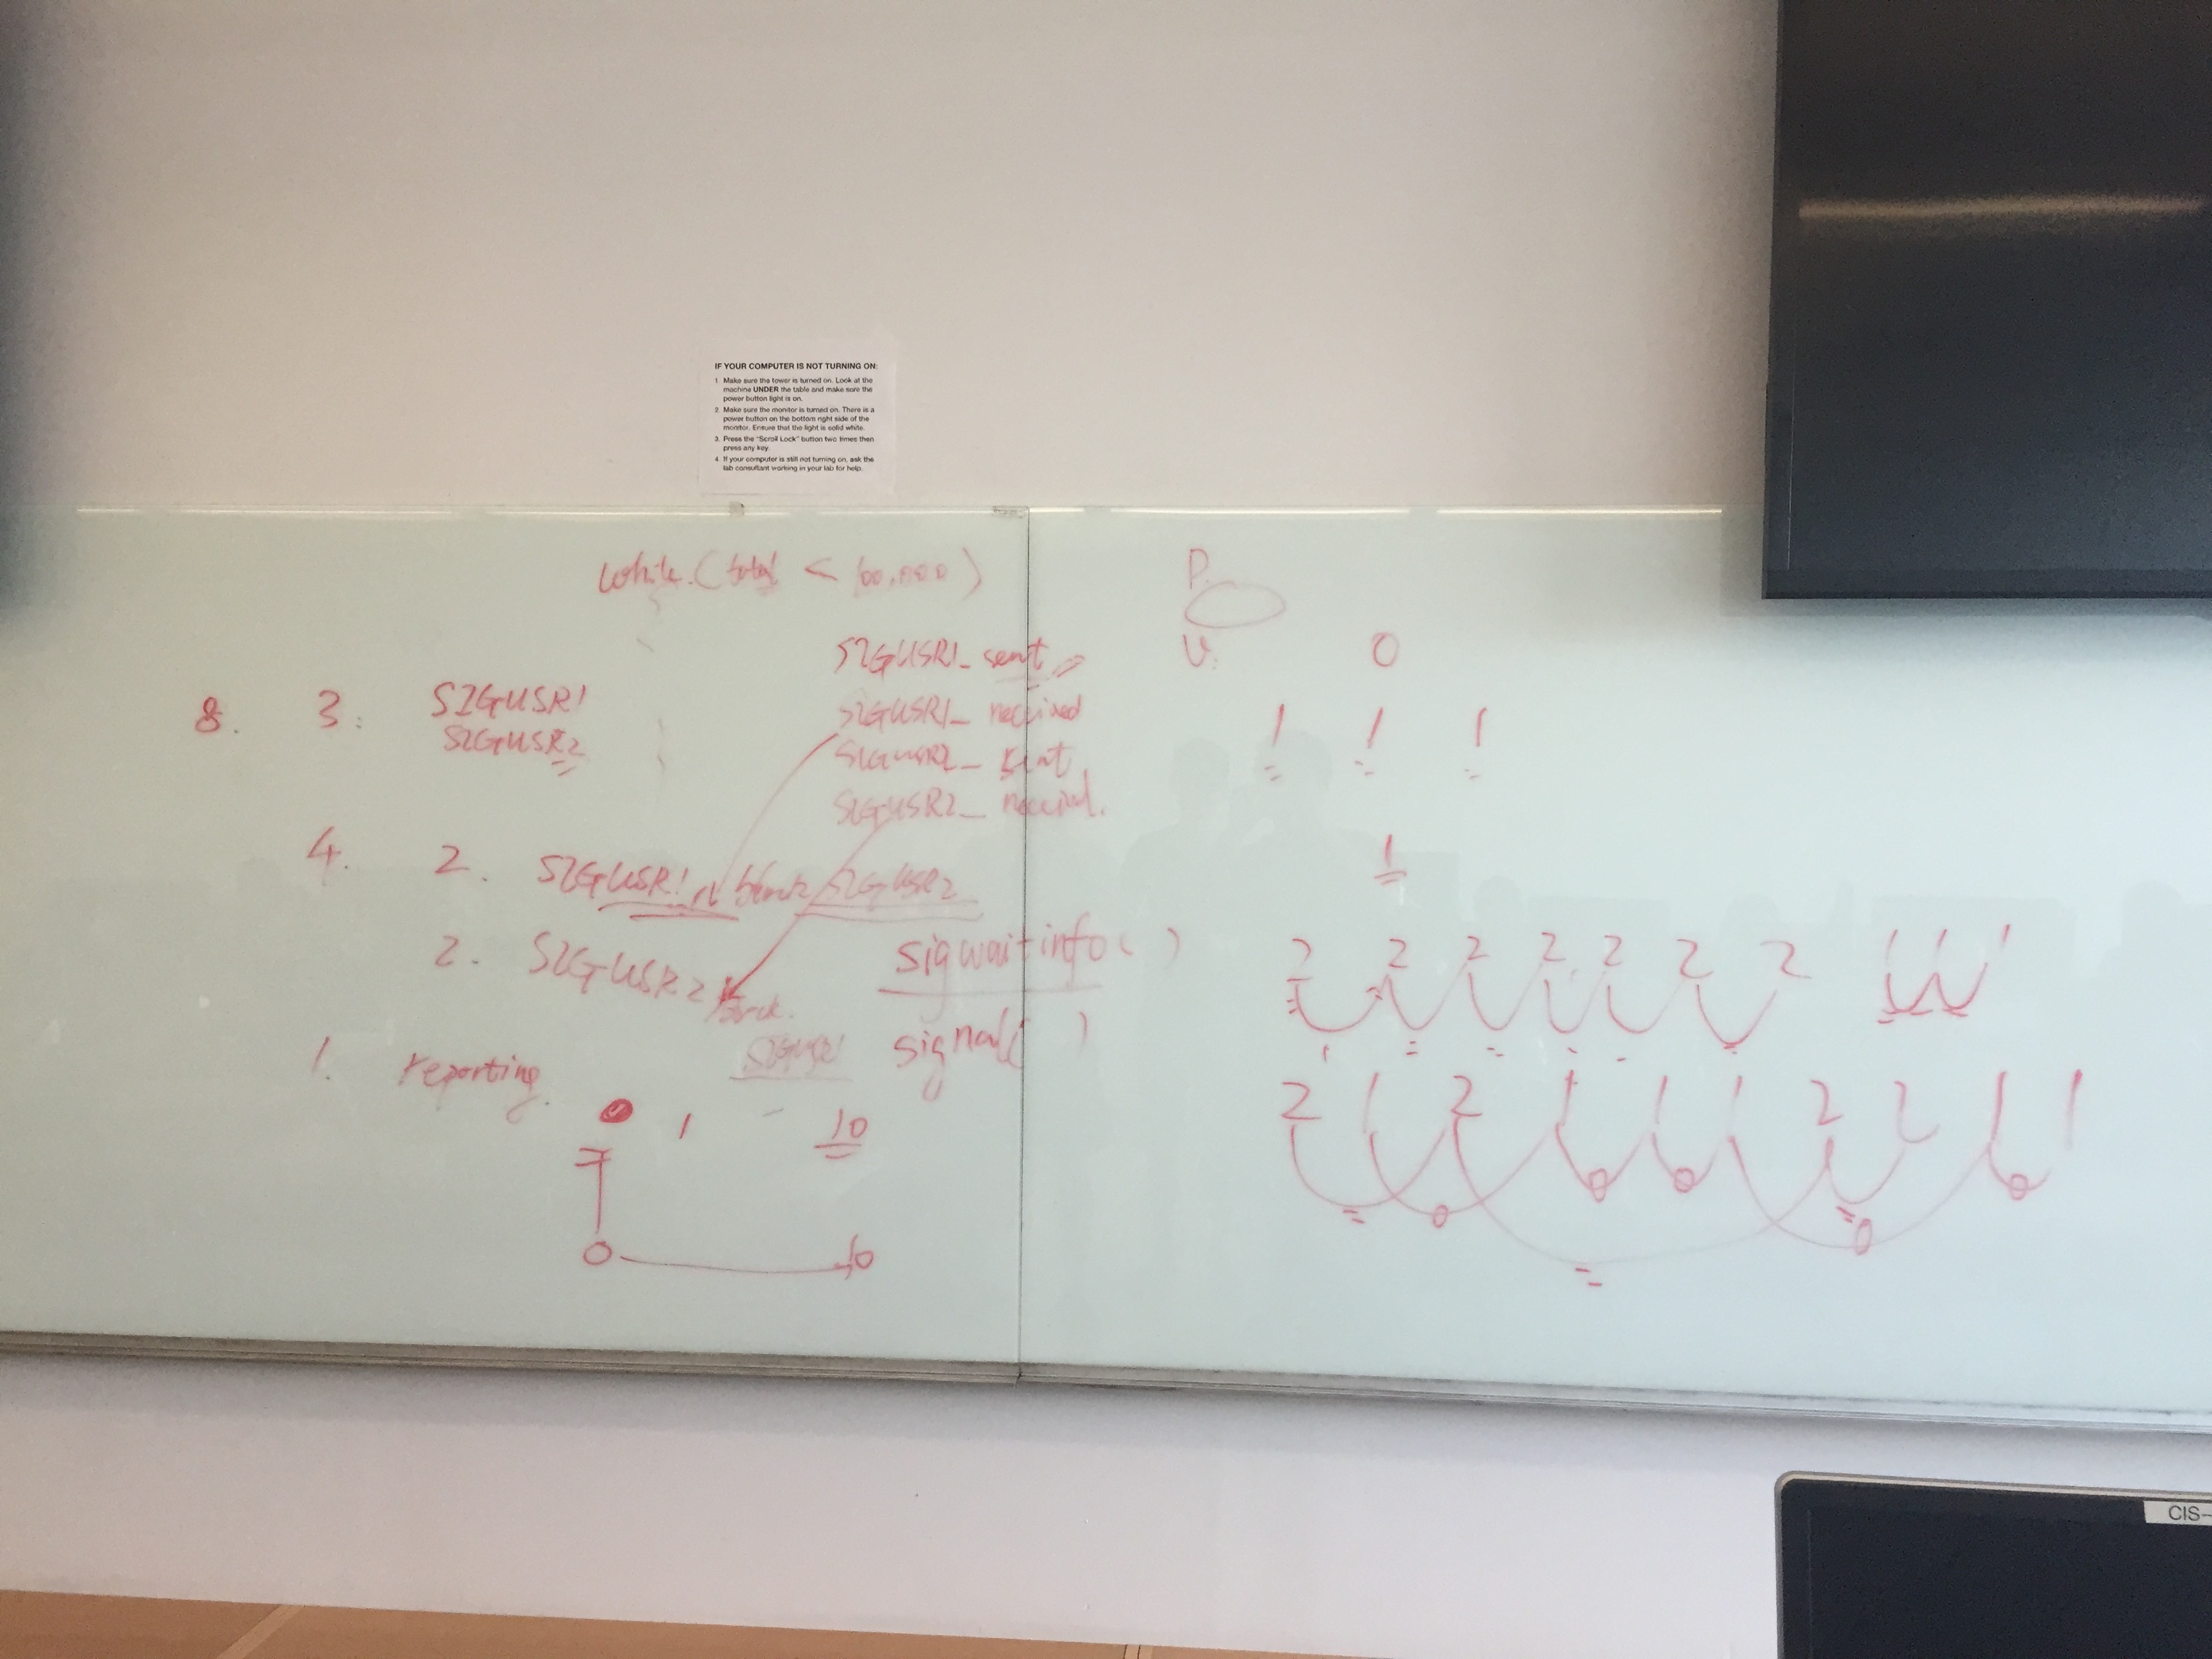 IF YOUR COMPUTER IS NOT TURNING ON:
1 Make sure the tower is turned on. Look at the
machine UNDER the table and make sure the
power button light is on.
2 Make sure the monitor is turned on. There is a
power button on the bottom right side of the
monitor. Ensure that the light is solid white.
3 Press the "Scroll Lock" button two times then
press any key.
4 If your computer is still not turning on, ask the
lab consultant working in your lab for help.
while (total < 100,000)
SIGUSR1_sent
SIGUSR1_received
SIGUSR2_sent
SIGUSR2_received.
8. 3: SIGUSR1
SIGUSR2
4. 2. SIGUSR1 block SIGUSR2
2. SIGUSR2 block
SIGUSR1
sigwaitinfo( )
signal( )
1. reporting.
1 10
0 10
P.
V: 0
1 1 1
1
2 2 2 2 2 2 2 1 1 1
2 1 2 1 1 1 2 2 1 1
CIS-